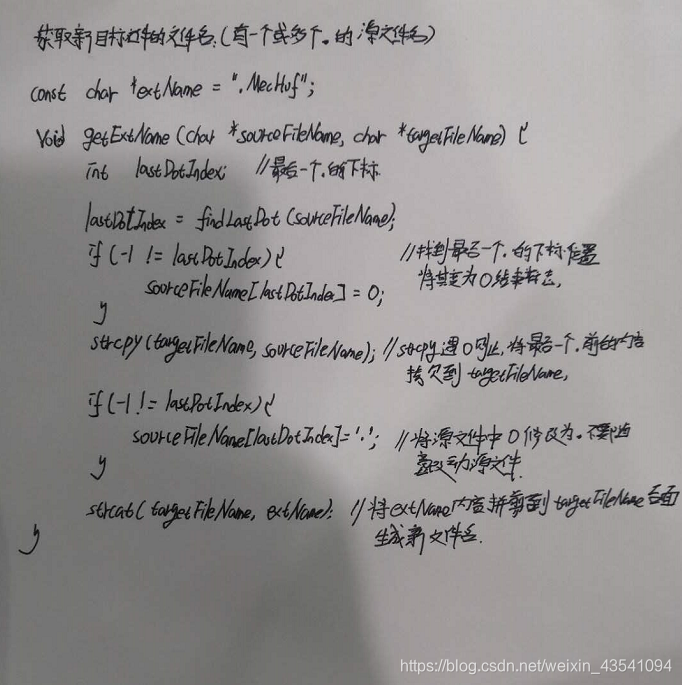 获取新目标文件的文件名:(有一个或多个.的源文件名)
const char *extName = ".MecHuf";
void getExtName (char *sourceFileName, char *targetFileName) {
int lastDotIndex; //最后一个.的下标
lastDotIndex = findLastDot (sourceFileName);
if (-1 != lastDotIndex) { //找到最后一个.的下标位置
sourceFileName[lastDotIndex] = 0; 将其变为0结束标志,
}
strcpy (targetFileName, sourceFileName); //strcpy遇0则止,将最后一个.前的内容
拷贝到targetFileName,
if (-1 != lastDotIndex) {
sourceFileName[lastDotIndex]='.'; //将源文件中0修改为.不要
改动源文件.
}
strcat( targetFileName, extName); //将extName内容拼剪到targetFileName后面
生成新文件名.
}
https://blog.csdn.net/weixin_43541094